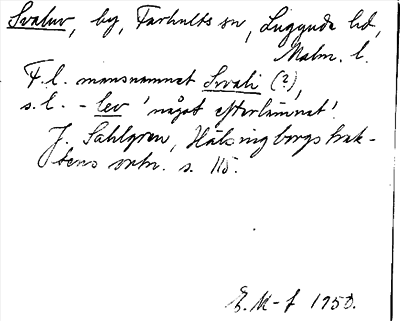 Svaluv, by, Farhults sn, Luggude hd,
Malm. l.
F.l. mansnamnet Svali (?),
s.l. - lev 'något efterlämnat'.
J. Sahlgren, Hälsingborgstrak-
tens ortn. s. 115.
E. M-f 1950.